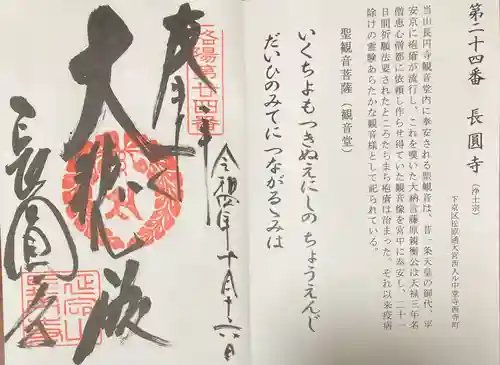 第二十四番 長圓寺（浄土宗）
下京区松原通大宮西入ル中堂寺西寺町
当山長円寺観音堂内に奉安される聖観音は、昔一条天皇の御代、平
安京に疱瘡が流行し、これを嘆いた大納言藤原親衡公は天禄三年名
僧恵心僧都に依頼し作らせ得ていた観音像を宮中に奉安し、二十一
日間祈願法要されたところたちまち疱瘡は治まった。それ以来疫病
除けの霊験あらたかな観音様として記られている。
聖観音菩薩（観音堂）
いくちよもつきぬえにしの ちょうえんじ
だいひのみてにつながるゝみは
令和四年十月十六日
洛陽第廿四番
奉拝
大悲殿
長圓寺